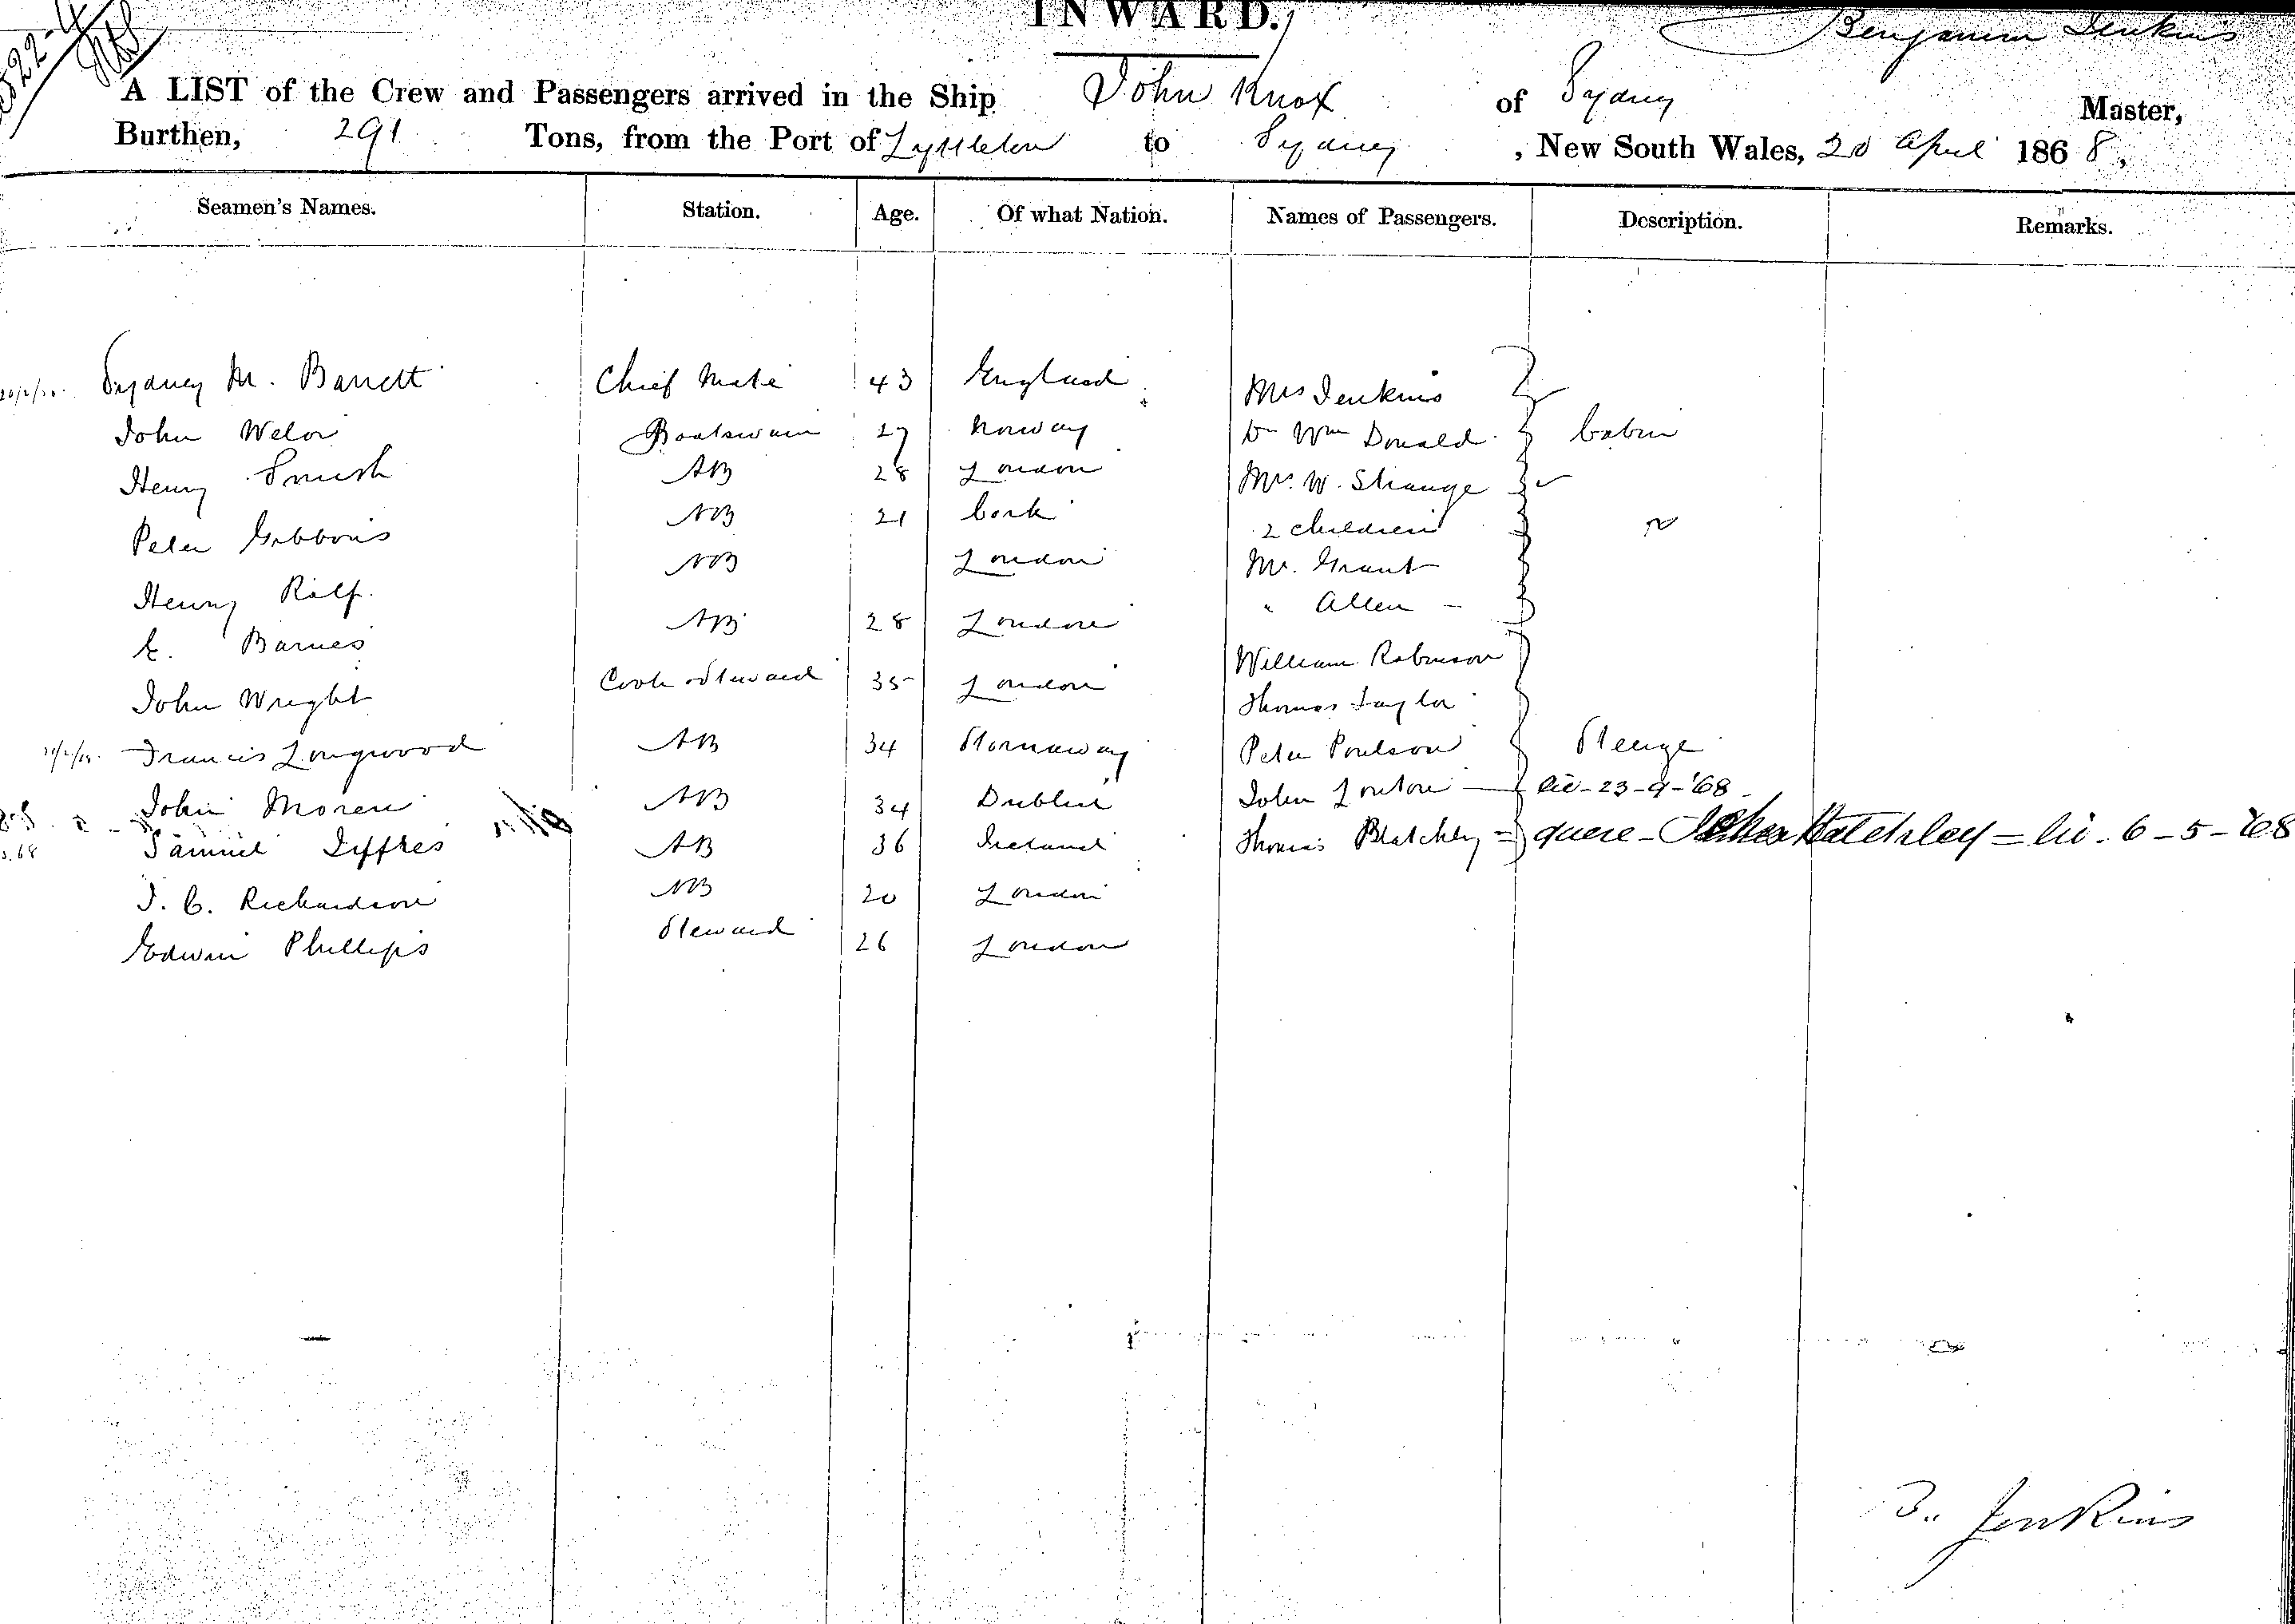 INWARD.
Benjamin Jenkins
A LIST of the Crew and Passengers arrived in the Ship John Knox of Sydney Master,
Burthen, 291 Tons, from the Port of Lyttleton to Sydney, New South Wales, 20 April 1868,
Seamen's Names. Station. Age. Of what Nation. Names of Passengers. Description. Remarks.
Sydney M. Barrett Chief Mate 43 England Mrs Jenkins
John Boatswain 27 Norway Wm Donald Cabin
Henry Smith AB 28 London W. Strange
Peter Gibbons AB 21 Cork 2 children
Henry AB London Mr. Grant
Barnes AB 28 London " Allen
John Wright Cook & Steward 35 London William Robinson
Thomas Taylor
Francis Longwood AB 34 Stornaway Peter Poulson Steerge
John AB 34 Dublin John 23-9-'68
Samuel AB 36 Ireland Thomas Blatchley = quere - Hatchley = 6-5-'68
J. C. Richardson AB 20 London
Edwin Phillips Steward 26 London
Jenkins